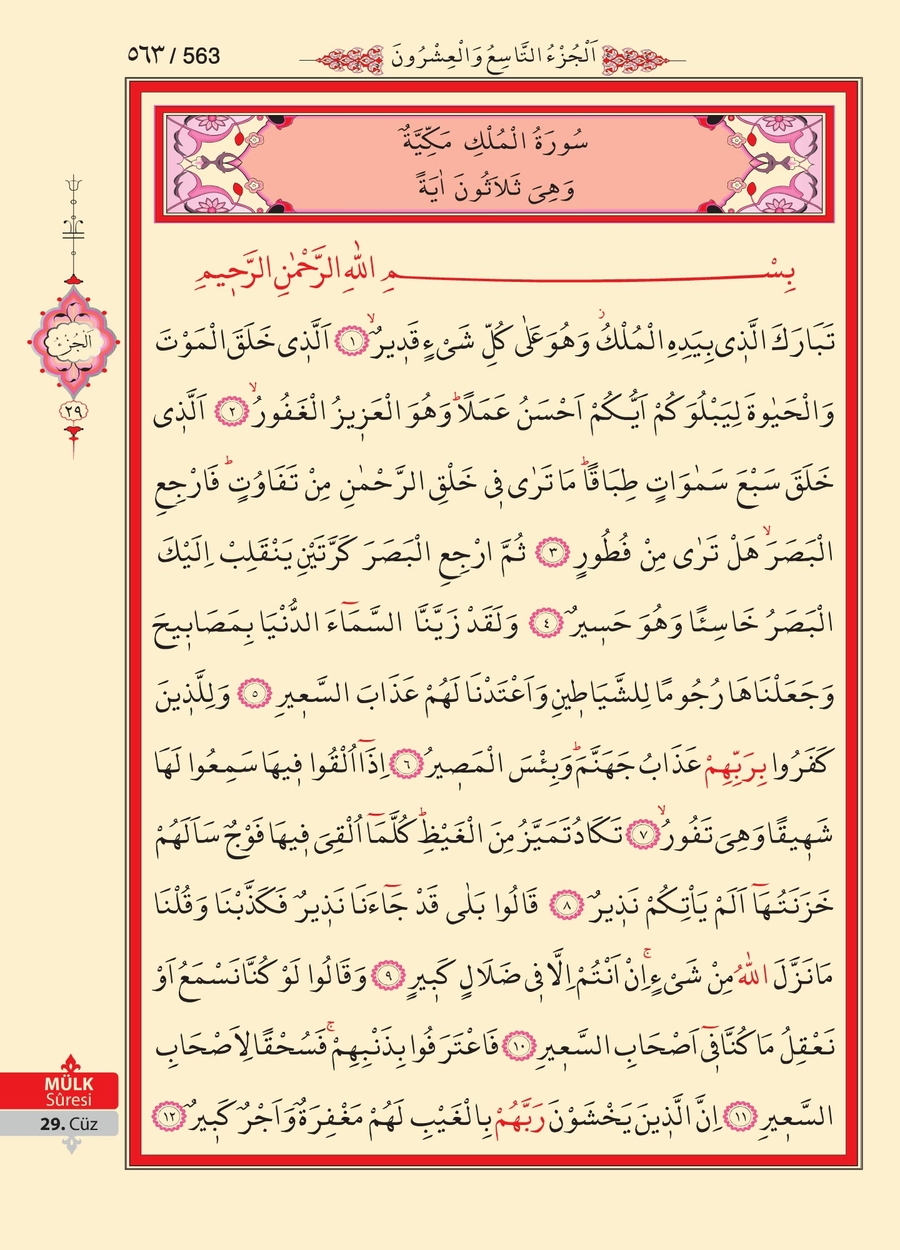 ٥٦٣ / 563
اَلْجُزْءُ التَّاسِعُ وَالْعِشْرُونَ
سُورَةُ الْمُلْكِ مَكِّيَّةٌ
وَهِيَ ثَلَاثُونَ اٰيَةً
بِسْمِ اللّٰهِ الرَّحْمٰنِ الرَّح۪يمِ
تَبَارَكَ الَّذ۪ي بِيَدِهِ الْمُلْكُۘ وَهُوَ عَلٰى كُلِّ شَيْءٍ قَد۪يرٌۙ ﴿١﴾ اَلَّذ۪ي خَلَقَ الْمَوْتَ
وَالْحَيٰوةَ لِيَبْلُوَكُمْ اَيُّكُمْ اَحْسَنُ عَمَلًاۜ وَهُوَ الْعَز۪يزُ الْغَفُورُۙ ﴿٢﴾ اَلَّذ۪ي
خَلَقَ سَبْعَ سَمٰوَاتٍ طِبَاقًاۜ مَا تَرٰى ف۪ي خَلْقِ الرَّحْمٰنِ مِنْ تَفَاوُتٍۜ فَارْجِعِ
الْبَصَرَۙ هَلْ تَرٰى مِنْ فُطُورٍ ﴿٣﴾ ثُمَّ ارْجِعِ الْبَصَرَ كَرَّتَيْنِ يَنْقَلِبْ اِلَيْكَ
الْبَصَرُ خَاسِئًا وَهُوَ حَس۪يرٌ ﴿٤﴾ وَلَقَدْ زَيَّنَّا السَّمَٓاءَ الدُّنْيَا بِمَصَاب۪يحَ
وَجَعَلْنَاهَا رُجُومًا لِلشَّيَاط۪ينِ وَاَعْتَدْنَا لَهُمْ عَذَابَ السَّع۪يرِ ﴿٥﴾ وَلِلَّذ۪ينَ
كَفَرُوا بِرَبِّهِمْ عَذَابُ جَهَنَّمَۜ وَبِئْسَ الْمَص۪يرُ ﴿٦﴾ اِذَٓا اُلْقُوا ف۪يهَا سَمِعُوا لَهَا
شَه۪يقًا وَهِيَ تَفُورُۙ ﴿٧﴾ تَكَادُ تَمَيَّزُ مِنَ الْغَيْظِۜ كُلَّمَٓا اُلْقِيَ ف۪يهَا فَوْجٌ سَاَلَهُمْ
خَزَنَتُهَٓا اَلَمْ يَأْتِكُمْ نَذ۪يرٌ ﴿٨﴾ قَالُوا بَلٰى قَدْ جَٓاءَنَا نَذ۪يرٌ فَكَذَّبْنَا وَقُلْنَا
مَا نَزَّلَ اللّٰهُ مِنْ شَيْءٍۚ اِنْ اَنْتُمْ اِلَّا ف۪ي ضَلَالٍ كَب۪يرٍ ﴿٩﴾ وَقَالُوا لَوْ كُنَّا نَسْمَعُ اَوْ
نَعْقِلُ مَا كُنَّا ف۪ٓي اَصْحَابِ السَّع۪يرِ ﴿١٠﴾ فَاعْتَرَفُوا بِذَنْبِهِمْۚ فَسُحْقًا لِاَصْحَابِ
السَّع۪يرِ ﴿١١﴾ اِنَّ الَّذ۪ينَ يَخْشَوْنَ رَبَّهُمْ بِالْغَيْبِ لَهُمْ مَغْفِرَةٌ وَاَجْرٌ كَب۪يرٌ ﴿١٢﴾
اَلْجُزْءُ
٢٩
MÜLK
Sûresi
29. Cüz